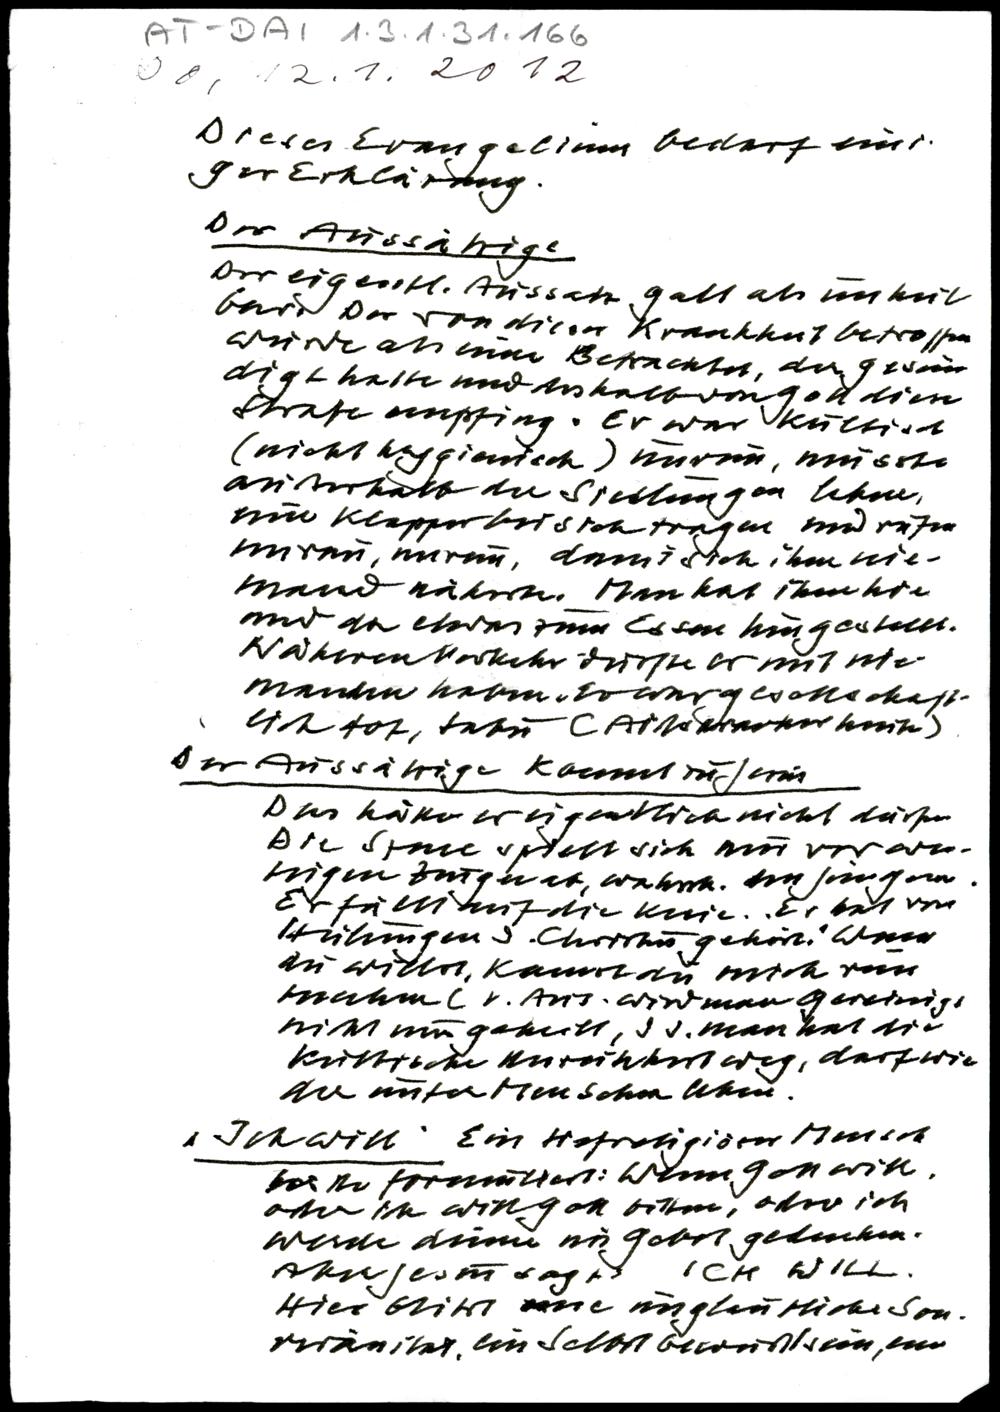 AT-DAI 1.3.1.31.166
Do, 12.1. 2012
Dieses Evangelium bedarf eini-
ger Erklärung.
Der Aussätzige
Der eigentl. Aussatz galt als unheil
bar. Der von dieser Krankheit betroffen
wurde als einer Betrachtet, der gesün
digt hatte und deshalb von Gott diese
Strafe empfing. Er war Kultisch
(nicht hygienisch) unrein, musste
außerhalb der Siedlungen leben,
eine Klapper bei sich tragen und rufen
unrein, unrein, damit sich ihm nie-
mand näherte. Man hat ihm hie
und da etwas zum Essen hingestellt.
Näheren Verkehr durfte er mit nie-
manden haben. Er war gesellschaft-
lich tot, tabu (Aidskranker heute)
Der Aussätzige kommt zu Jesus
Das hätte er eigentlich nicht dürfen
Die Szene spielt sich nun vor we-
nigen Zeugen ab, wahrsch. den Jüngern.
Er fällt auf die Knie. Er hat von
Heilungen J. Christus gehört: Wenn
du willst, kannst du mich rein
machen (v. Auss. wird man gereinigt
nicht nur geheilt, d. h. man hat die
kultische Unreinheit weg, darf wie
der unter Menschen leben.
"Ich will" Ein tiefreligiöser Mensch
hätte formuliert: Wenn Gott will,
oder ich will Gott bitten, oder ich
werde deiner im Gebet gedenken.
Aber Jesus sagt: ICH WILL.
Hier blitzt eine unglaubliche Sou-
veränität, ein Selbstbewußtsein, ein